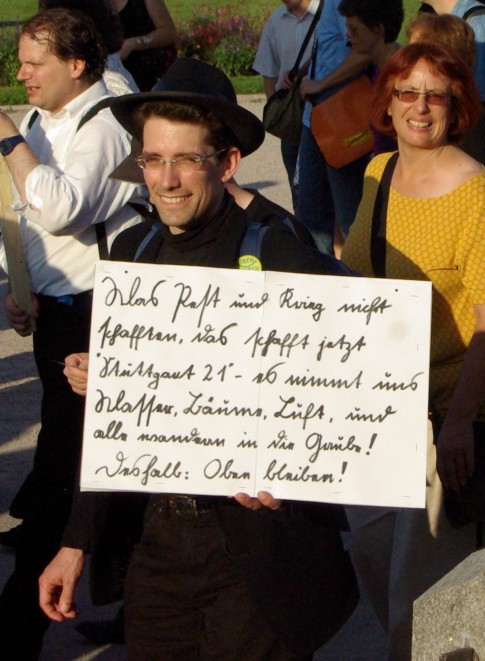 Was Pest und Krieg nicht
schafften, das schafft jetzt
"Stuttgart 21" - es nimmt uns
Wasser, Bäume, Luft, und
alle wandern in die Grube!
Deshalb: Oben bleiben!